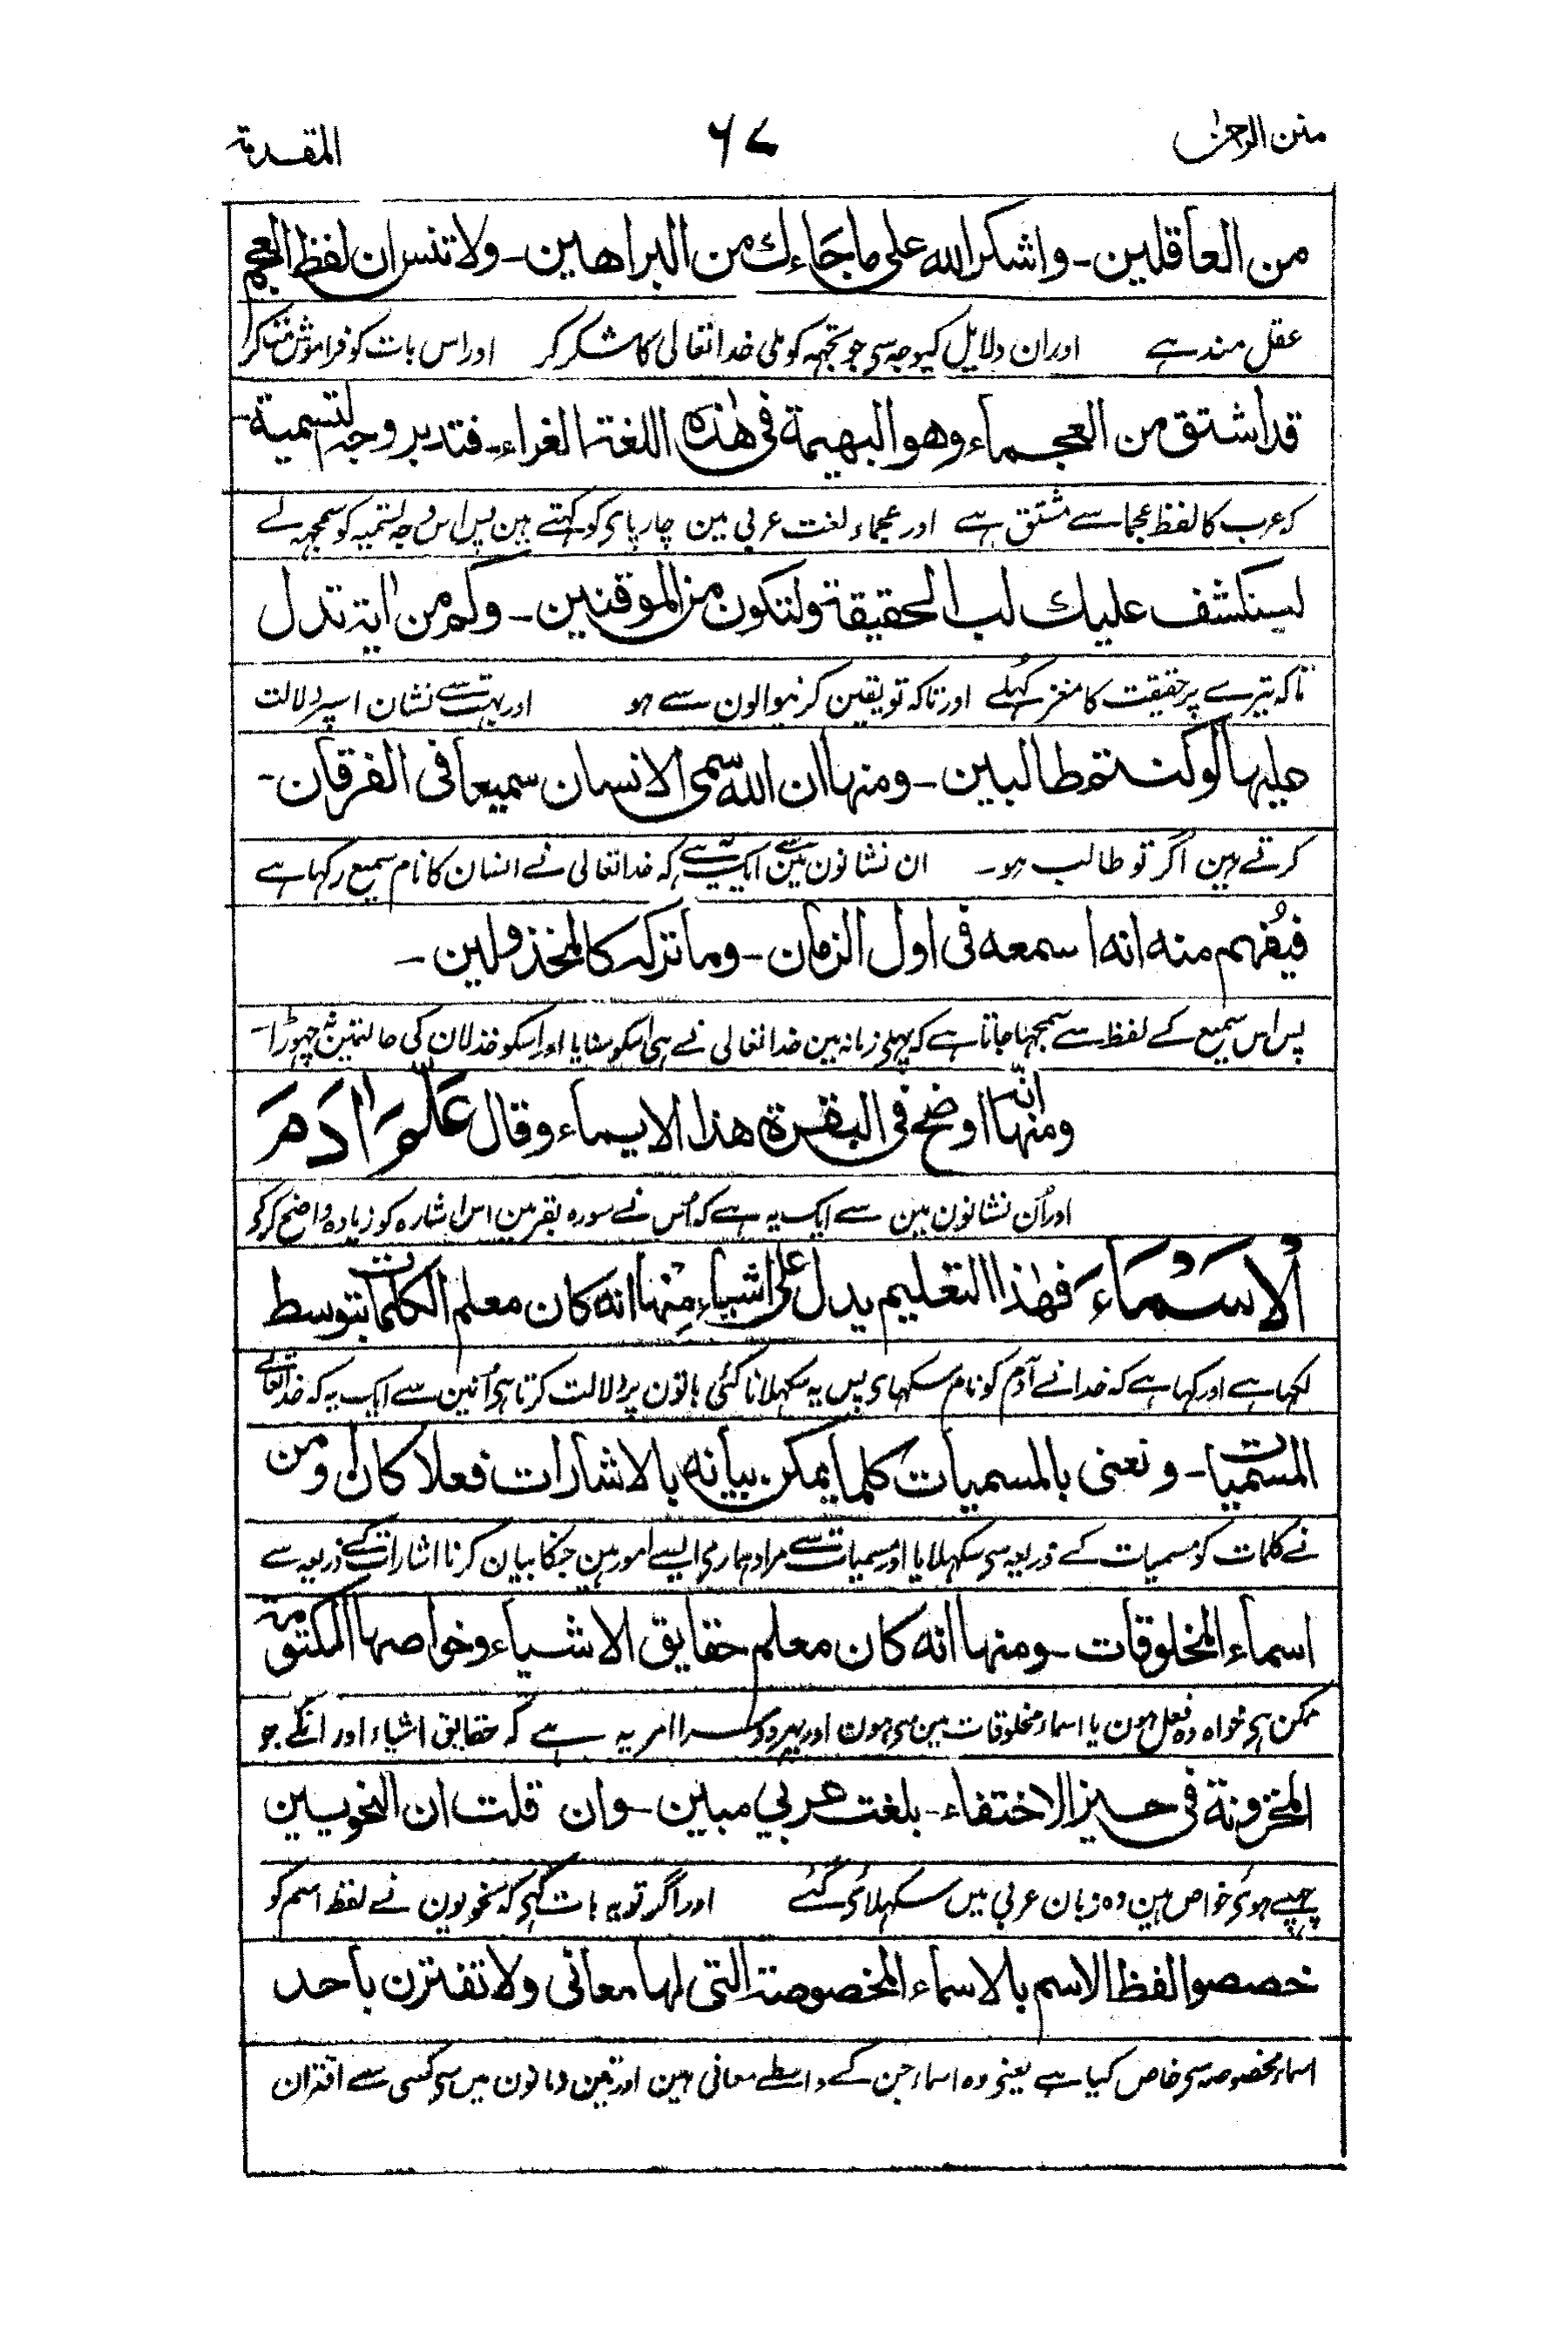 منن الرحمٰن ۶۷ المقدمة
من العاقلين - واشكر الله على ما جاءك من البراهين - ولا تنس ان لفظ العجم
عقل مند ہے اور ان دلایل کیوجہ سی جو تجہہ کو ملی خدا تعالی کا شکر کر اور اس بات کو فراموش مت کر
قد اشتق من العجماء وهو البهيمة فى هٰذه اللغة الغراء - فتدبر وجه التسمية -
کہ عرب کا لفظ عجما سے مشتق ہے اور عجماء لغت عربی مین چارپای کو کہتے ہین پس اس وجہ تسمیہ کو سمجہہ لے
لينكشف عليك لب الحقيقة ولتكون من الموقنين - وكم من اٰية تدل
تاکہ تیرے پر حقیقت کا مغز کُہلے اور تاکہ تو یقین کرنیوالون سے ہو اور بہت سے نشان اسپر دلالت
عليها لو كنتم طالبين - ومنها ان الله سمى الانسان سميعا فى الفرقان -
کرتے ہین اگر تو طالب ہو - ان نشانون مین سے ایک یہ ہے کہ خدا تعالی نے انسان کا نام سمیع رکہا ہے
فيُفهم منه انه اسمعه فى اول الزمان - وما تركه كالمخذولين -
پس اس سمیع کے لفظ سے سمجہا جاتا ہے کہ پہلی زمانہ مین خدا تعالی نے ہی اسکو سنایا اور اسکو خذلان کی حالت مین نہ چہوڑا -
ومنها انه اوضح فى البقرة هذا الايماء وقال عَلَّمَ اٰدَمَ
اور اُن نشانون مین سے ایک یہ ہے کہ اُس نے سورہ بقر مین اس اشارہ کو زیادہ واضح کر کے
الْاَسْمَاءَ فهٰذا التعليم يدل على اشياء مِنْها انه كان معلم الكلمات بتوسط
لکہا ہے اور کہا ہے کہ خدا نے آدم کو نام سکہای پس یہ سکہلانا کئی باتون پر دلالت کرتا ہی اُنمین سے ایک یہ کہ خدا تعالے
المسميات - ونعنى بالمسميات كلما يمكن بيانه بالاشارات فعلا كان او من
نے کلمات کو مسمیات کے ذریعہ سی سکہلایا اور مسمیات سے مراد ہماری ایسے امور ہین جنکا بیان کرنا اشارات کے ذریعہ سے
اسماء المخلوقات - ومنها انه كان معلم حقايق الاشياء وخواصها المكتومة
ممکن ہی خواہ وہ فعل ہون یا اسماء مخلوقات مین سی ہون اور پہر دوسرا امر یہ ہے کہ حقایق اشیاء اور انکے جو
المخزونة فى حيز الاختفاء - بلغت عربي مبين - وان قلت ان النحويين
چہپے ہوئی خواص ہین وہ زبان عربی میں سکہلائی گئے اور اگر تو یہ بات کہی کہ نحویون نے لفظ اسم کو
خصصوا لفظ الاسم بالاسماء المخصوصة التى لها معانى ولا تقترن باحد
اسماء مخصوصہ سی خاص کیا ہے یعنی وہ اسماء جن کے واسطے معانی ہین اور تین زمانون میں سی کسی سے اقتران